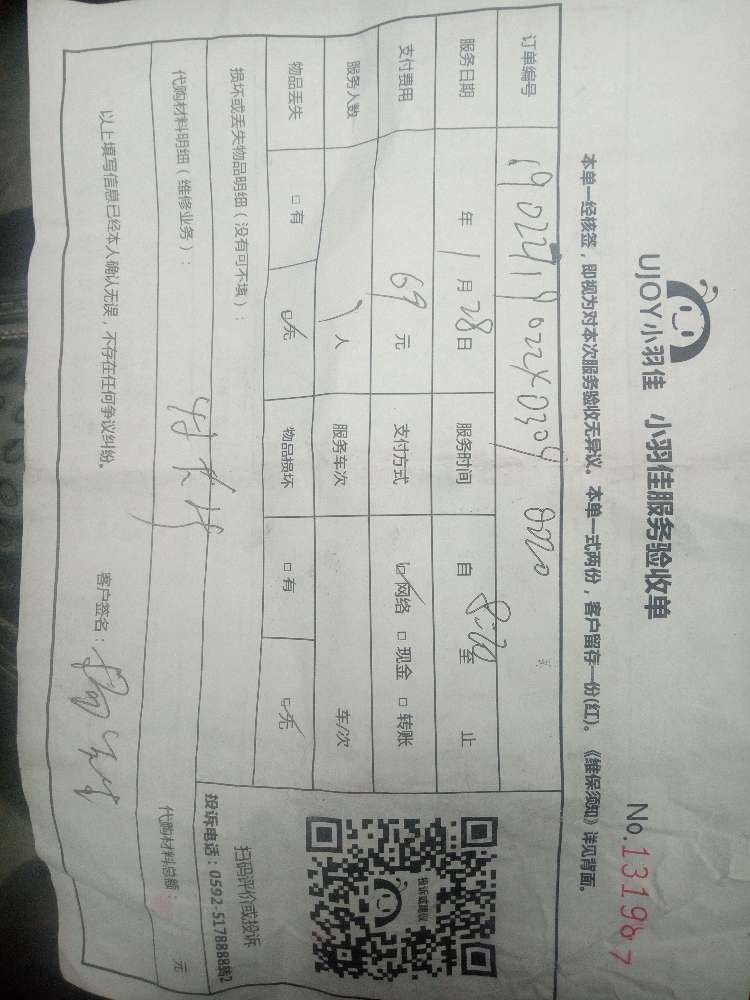 UJOY小羽佳 小羽佳服务验收单
No.1319867
本单一经核签，即视为对本次服务验收无异议。本单一式两份，客户留存一份(红)。《维保须知》详见背面。
订单编号
服务日期 年 1 月 28 日 服务时间 自 8:20 至 止
支付费用 69 元 支付方式 ☑网络 □现金 □转账
服务人数 1 人 服务车次 车/次
物品丢失 □有 ☑无 物品损坏 □有 ☑无
损坏或丢失物品明细（没有可不填）：
代购材料明细（维修业务）： 代购材料总额： 元
以上填写信息已经本人确认无误，不存在任何争议纠纷。 客户签名：
投诉或建议
扫码评价或投诉
投诉电话：0592-5178888转2